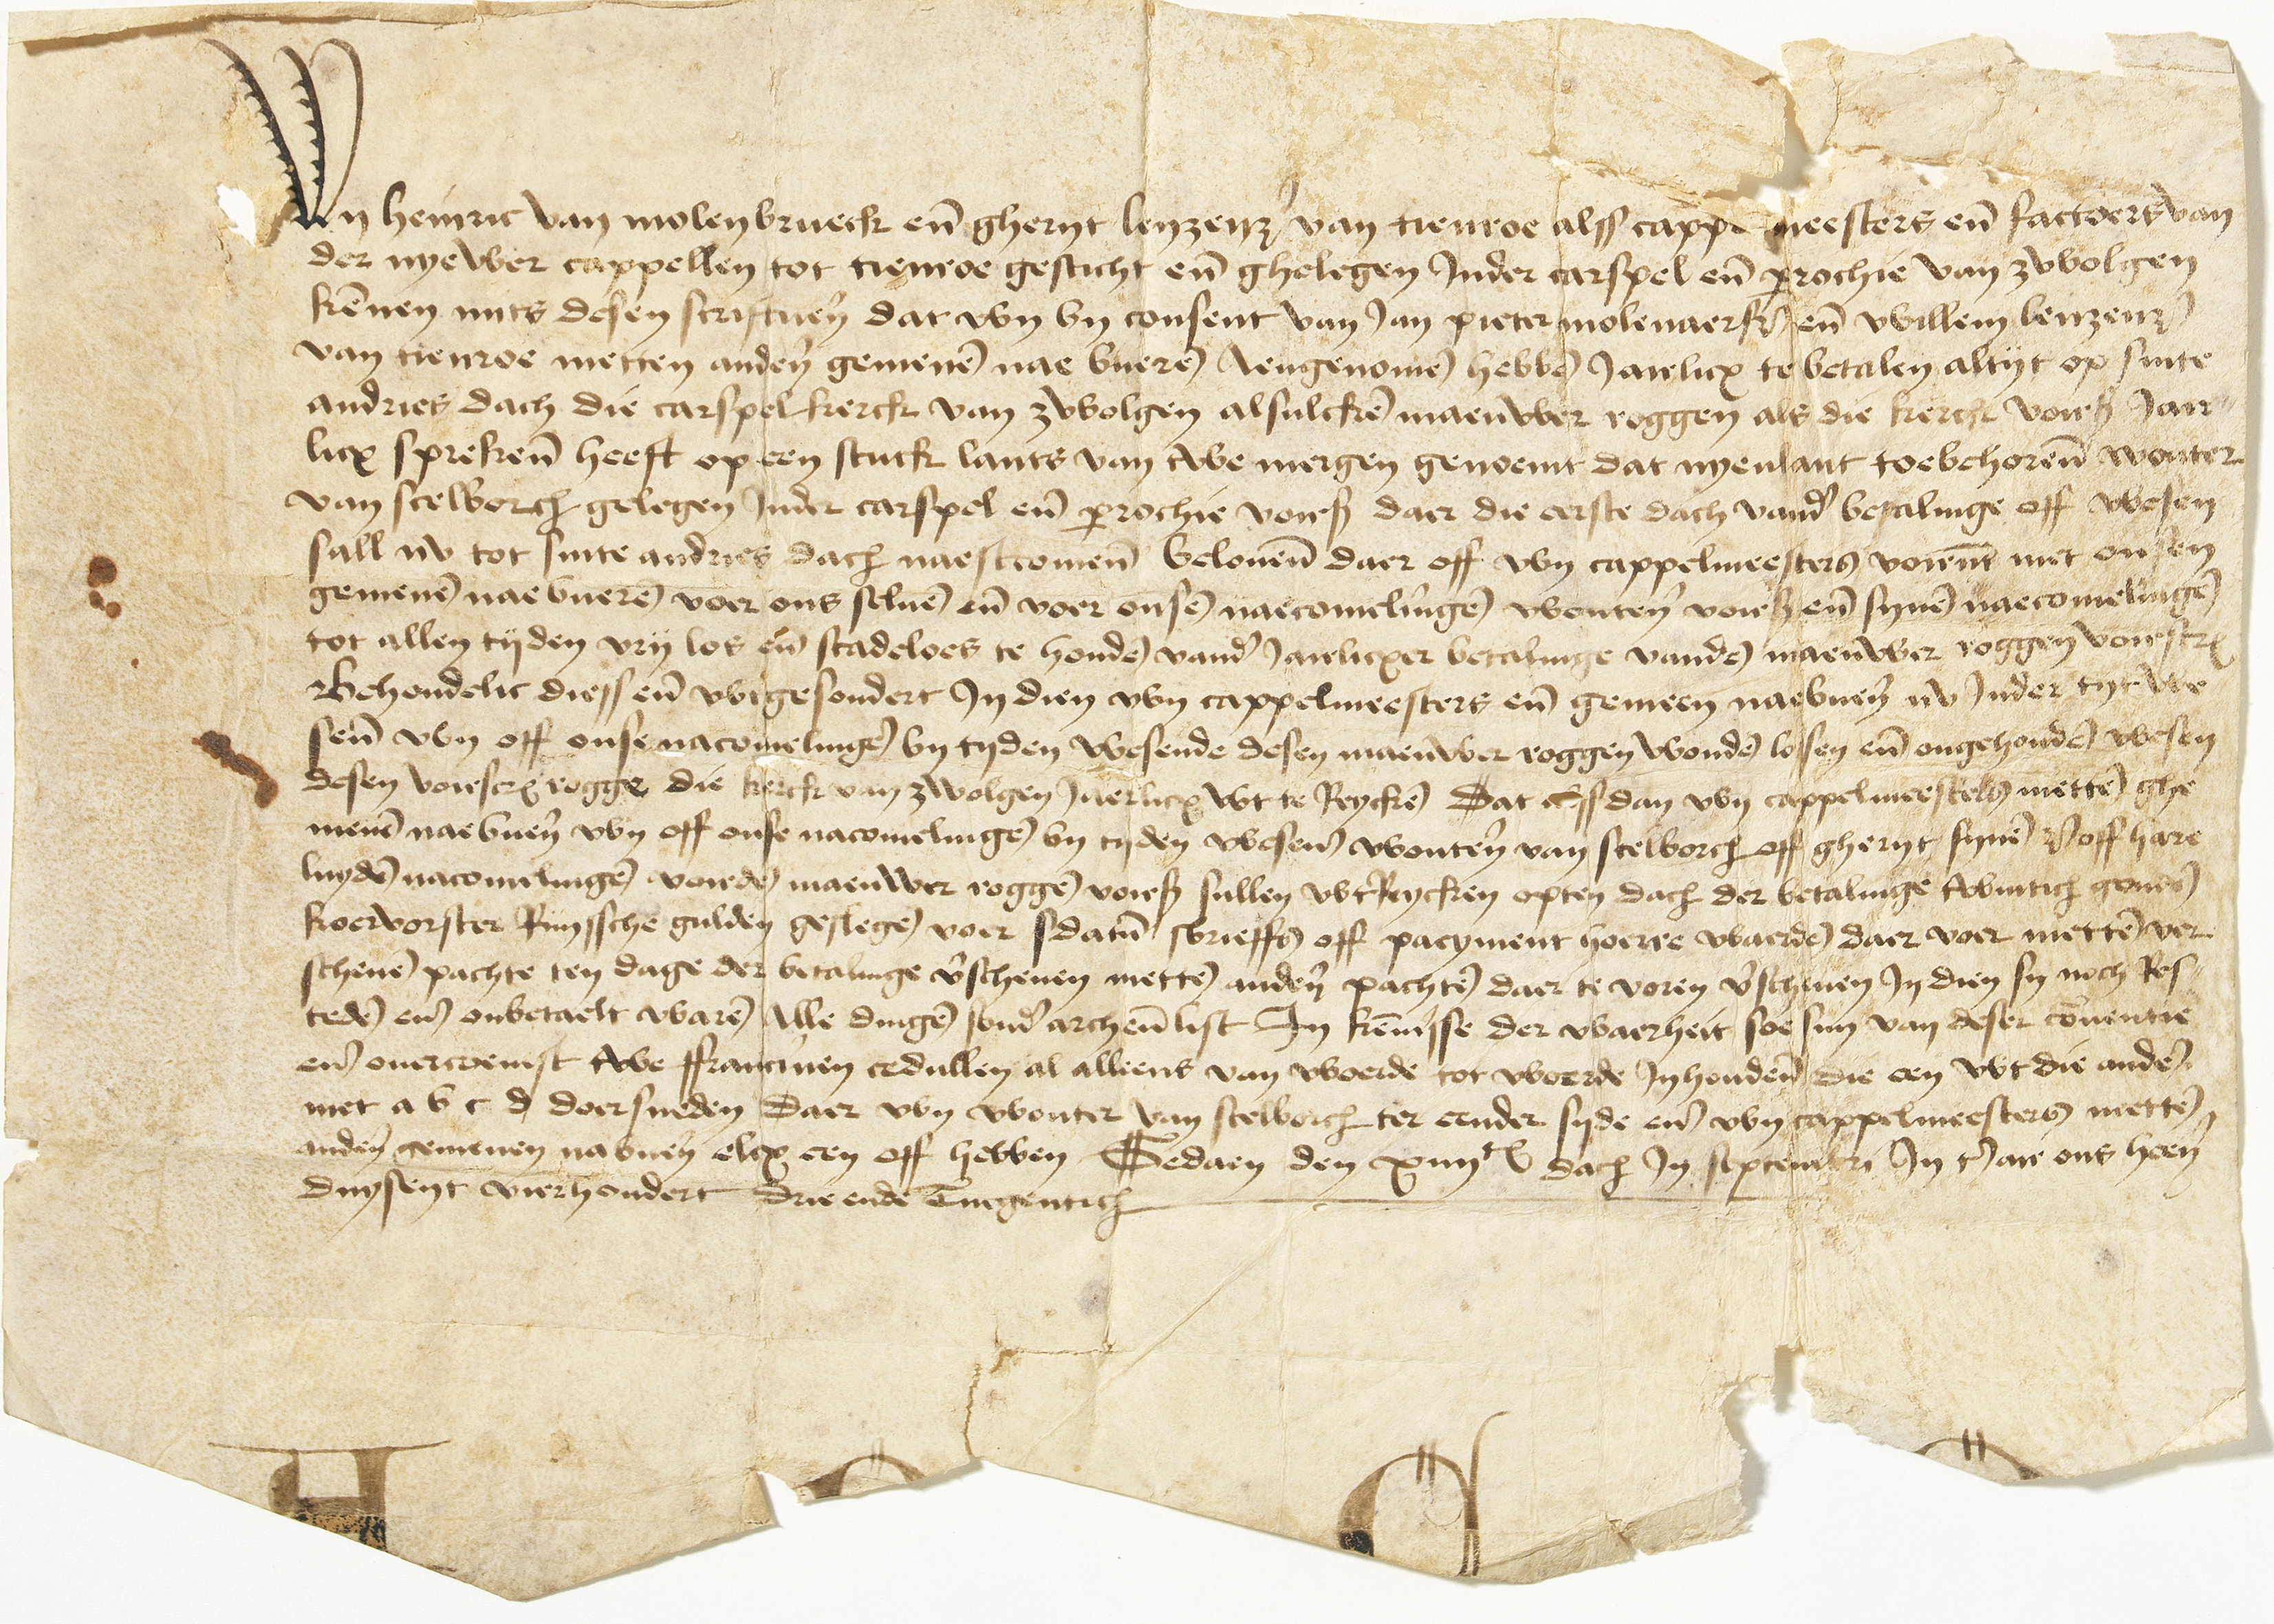 Wy heinric van molenbrueck eñ gheryt lenzenz van tienroe alss cappe meesters eñ factoers van
der nyewer cappellen tot tienroe gesticht eñ ghelegen Inder carspel eñ prochie van zwolgen
kēnen mits desen scriftuer dat wy by consent van Jan pieter molenaerss eñ willem lenzenz
van tienroe metten ander gemenē nae buerē Aengenomē hebbē Jairlicx te betalen altyt op sinte
andries dach die carspel kerck van zwolgen alsulckē maeuwer roggen als die kerck voirß Jair
licx sprekeñ heeft op een stuck lants van twe mergen genoemt dat nyenlant toebehoreñ wouter
van stelborch gelegen Inder carspel eñ prochie voirß daer die eerste dach vand betalinge off wesen
sall nv tot sinte andries dach naestcomeñ Geloueñ daer off wy cappelmeesters voirnt met onsen
gemenē nae buerē voer ons seluē eñ voer onsē naecomelingē wouter voirß eñ synē naecomelingē
tot allen tyden vry los eñ scadeloes te houdē vand Jairlicxer betalinge vandē maeuwer roggen voirscr
Behoudelic diess eñ wtgesondert In dien wy cappelmeesters eñ gemeen naebuer nv Inder tyt we
señ wy off onse nacomelingē by tyden wesende desen maeuwer roggen woudē lossen eñ ongehoudē wesen
desen voirscr rogge die kerck van zwolgen Jaerlicx wt te Reyckē Dat alss dan wy cappelmeesters mettē ghe
menē naebuer wy off onse nacomelingē by tyden weseñ wouter van stelborch off gheryt synē off hare
luydē nacomelingē voirdē maeuwer roggē voirß sullen wtReycken opten dach der betalinge twintich gouden
koervorster Rynssche gulden geslegē voer sdatū sbrieffs off payment hoerre waerdē daer voer mettē ver
schenē pachte ten dage der betalinge vschenen mettē ander pachtē daer te voren vschenen In dien sy noch Res
tedē eñ onbetaelt warē Alle dingē sond archeñlist In kēnisse der waerheit soe sijn van deser cōuentie
eñ ouercoemst twe ffrancinen cedullen al alleens van woerde tot woerde Inhoudeñ die een wt die ander
met a b c d doersneden Daer wy wouter van stelborch ter eender syde eñ wy cappelmeesters mettē
ander gemenen nabuer elcx een off hebben Gedaen den dach In septembri In t Jair ons heer
duysent vierhondert drie ende Tnegentich